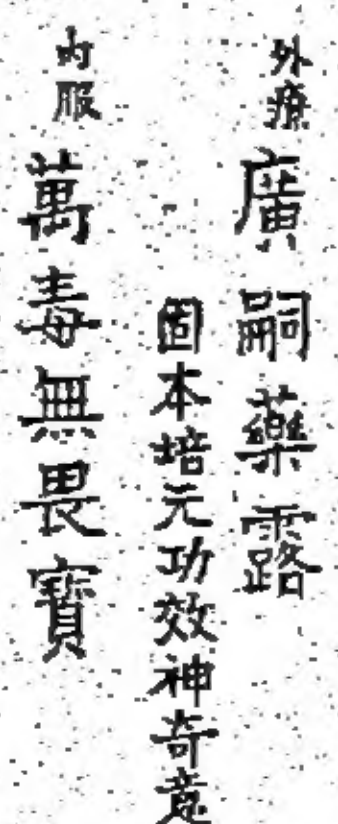 外療 廣嗣藥露
固本培元功效神奇意
內服 萬毒無畏寶